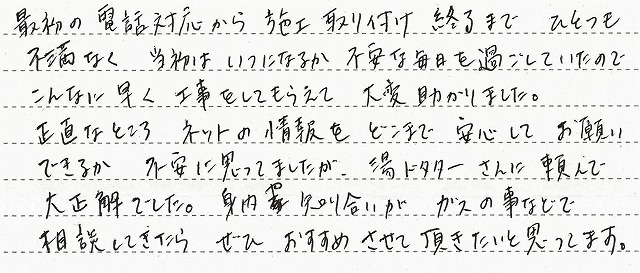 最初の電話対応から 施工 取り付け 終るまで ひとつも
不満なく 当初は いつになるか 不安な毎日を過ごしていたので
こんなに早く 工事をしてもらえて 大変助かりました。
正直なところ ネットの情報を どこまで 安心して お願い
できるか 不安に思ってましたが、湯ドクターさんに 頼んで
大正解でした。身内 知り合いが ガスの事などで
相談してきたら ぜひ おすすめ させて頂きたいと思ってます。